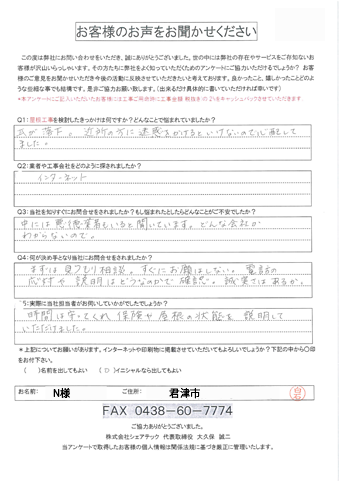 お客様のお声をお聞かせください
この度は弊社にお問い合わせをいただき、誠にありがとうございました。世の中には弊社の存在やサービスをご存知ないお
客様が沢山いらっしゃいます。その方たちに弊社をよく知っていただくためのアンケートにご協力いただけるでしょうか？ お客
様のご意見をお聞かせいただき今後の活動に反映させていただきたいと考えております。良かったこと、嬉しかったことどのよ
うな些細な事でも結構です。是非ご協力お願い致します。(出来るだけ具体的に書いていただければ幸いです)
＊本アンケートにご記入いただいたお客様には工事ご発注時に工事金額(税抜き)の2％をキャッシュバックさせていただきます
Q1:屋根工事を検討したきっかけは何ですか？どんなことで悩まれていましたか？
瓦が落下。近所の方に迷惑をかけるといけないので心配して
ました。
Q2:業者や工事会社をどのように探されましたか？
インターネット
Q3:当社を知りすぐにお問合せをされましたか？もし悩まれたとしたらどんなことがご不安でしたか？
中には悪徳業者もいると聞いています。どんな会社か
わからないので。
Q4:何が決め手となり当社にお問合せをされましたか？
まずは見つもり相談。すぐにお願はしない。電話の
応対や説明はどうなのかで確認。誠実さはあるか。
5:実際に当社担当者がお伺いしていかがでしたでしょうか？
時間は守ってくれ、保険や屋根の状態を説明して
いただけました。
＊上記についてお願いがあります。インターネットや印刷物に掲載させていただいてもよろしいでしょうか？下記の中から〇印
をお付下さい。
( )名前を出してもよい (〇)イニシャルなら出してもよい
お名前: N様 ご住所: 君津市
FAX 0438-60-7774
ご協力ありがとうございました。
株式会社シェアテック 代表取締役 大久保 誠二
当アンケートで取得したお客様の個人情報は関係法規に基づき厳正に管理いたします。